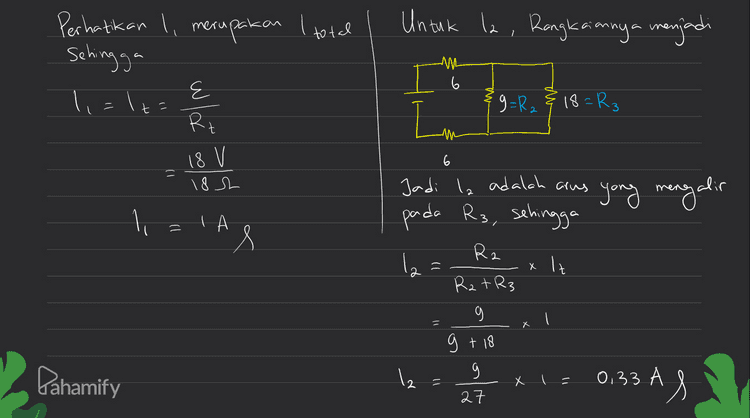 Perhatikan I₁ merupakan I total
Sehingga
I₁ = It = ε / Rt
= 18 V / 18 Ω
I₁ = 1 A //
Untuk I₂, Rangkaiannya menjadi
6
9=R₂
18=R₃
6
Jadi I₂ adalah arus yang mengalir
pada R₃, sehingga
I₂ = R₂ / R₂+R₃ x It
= 9 / 9 + 18 x 1
I₂ = 9 / 27 x 1 = 0,33 A //
Pahamify